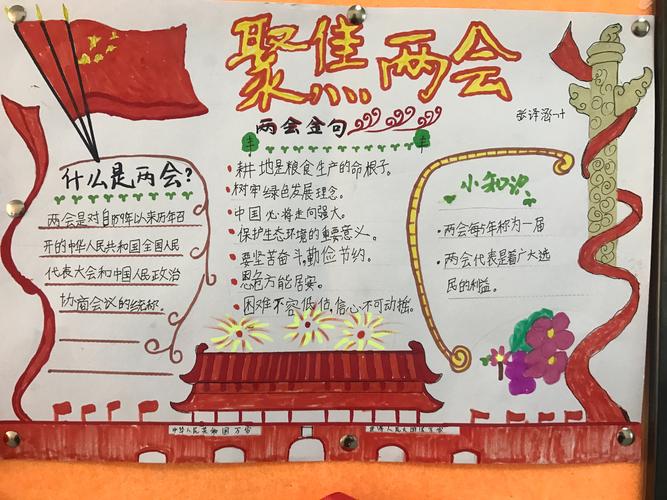 聚焦两会
两会金句
什么是两会?
两会是对自1959年以来历年召
开的中华人民共和国全国人民
代表大会和中国人民政治
协商会议的统称.
耕地是粮食生产的命根子。
树牢绿色发展理念。
中国必将走向强大。
保护生态环境的重要意义。
要坚苦奋斗,勤俭节约。
思危方能居安。
困难不容低估,信心不可动摇。
小知识
两会每5年称为一届
两会代表是着广大选
民的利益。
中华人民共和国万岁
世界人民大团结万岁